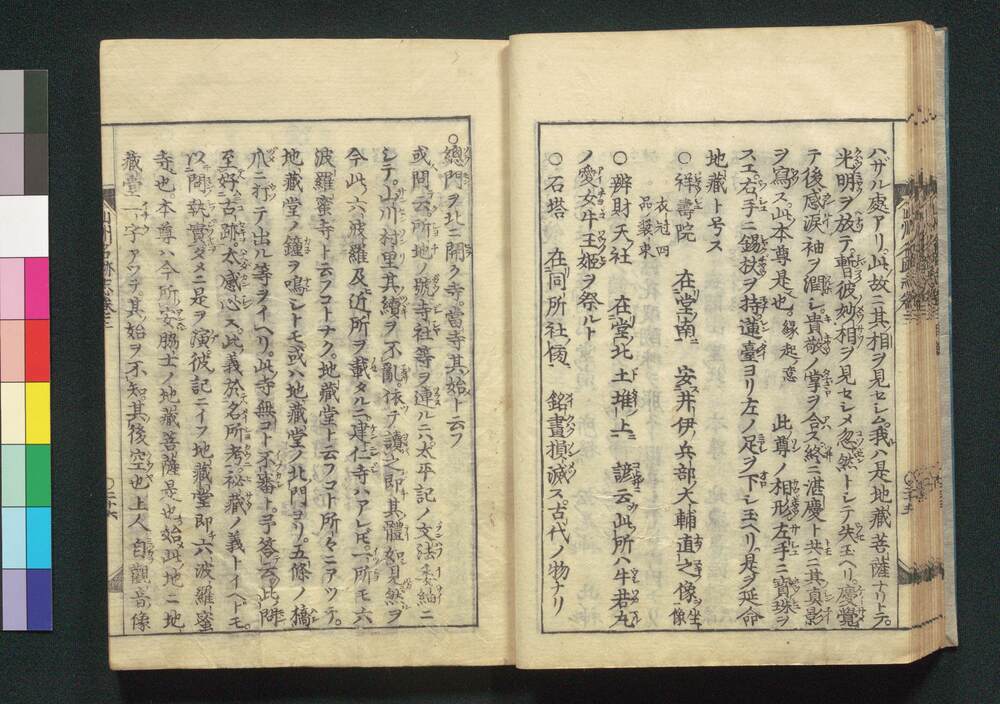 ハザル處アリ此故ニ其相ヲ見セシム我ハ是地藏菩薩ナリトテ
光明ヲ放テ暫彼妙相ヲ見セシメ忽然トシテ失玉ヘリ慶覺
テ後感淚袖ヲ潤シ貴敬ノ掌ヲ合ス終ニ湛慶ト共ニ其真影
ヲ寫ス此本尊是也 緣起意 此尊ノ相形左手ニ寶珠ヲ
スエ右手ニ錫杖ヲ持蓮臺ヨリ左ノ足ヲ下シ玉ヘリ是ヲ延命
地藏ト号ス
○祥壽院 在堂南 安井伊兵部大輔直之像 坐像
衣冠四品裝束
○辨財天社 在堂北土堆上 諺云此所ハ牛若丸
ノ愛女牛王姬ヲ祭ルト
○石塔 在同所社傍 銘書損滅ス古代ノ物ナリ
○總門ヲ北ニ開ク寺當寺其始ト云フ
或問云所地ノ號寺社等ヲ連ルニハ太平記ノ文法委細ニ
シテ山川村里其續ヲ不亂依テ讀之即其體如見然ヲ
今此六波羅及近所ヲ載タルニ建仁寺ハアレ𪜈一所モ六
波羅蜜寺ト云フコトナク地藏堂ト云フコト所々ニアツテ
地藏堂ノ鐘ヲ鳴シトモ或ハ地藏堂ノ北門ヨリ五條ノ橋
爪ニ打テ出ル等ヲイヘリ此寺無コト不審ト予答云此問
至好古跡太感心ス此義於名所考祕藏ノ義トイヘドモ
以問執賞タメニ是ヲ演彼記ニイフ地藏堂即六波羅蜜
寺也本尊ハ今所安脇士ノ地藏菩薩是也始此地ニ地
藏堂一宇アツテ其始ヲ不知其後空也上人自觀音像